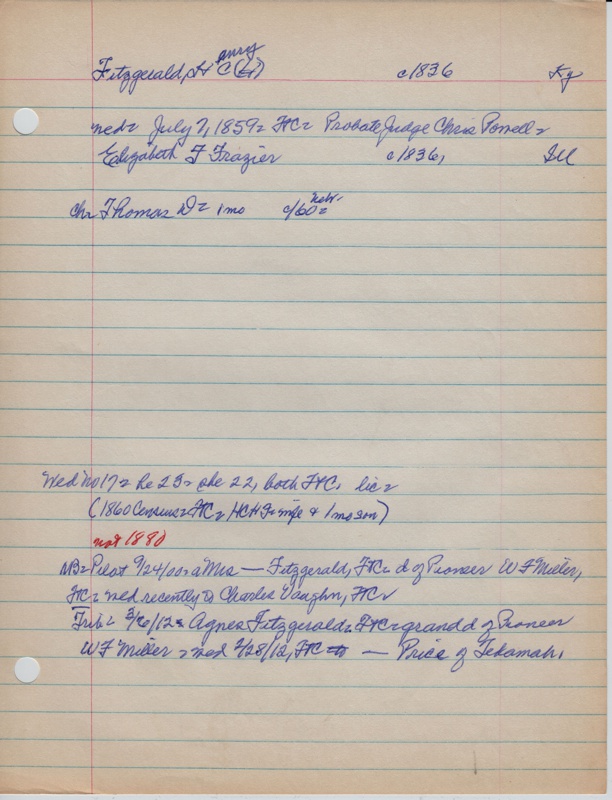 enry
Fitzgerald, H C (H) c1836 Ky
wed= July 7, 1859= FtC= Probate Judge Chris Powell=
Elizabeth F Frazier c1836, Ill
ch= Thomas D= 1mo c/60= Nebr.
Wed No 17= he 23= she 22, both FtC, lic=
(1860 Census= FtC= HCH F= wife & 1mo son)
not 1880
NB= Pilot 9/24/00= a Mrs — Fitzgerald, FtC= d of Pioneer W F Miller,
FtC= wed recently to Charles Vaughn, FtC=
Trib= 3/6/12= Agnes Fitzgerald= FtC= grand d of Pioneer
W F Miller= wed 2/28/12, FtC= to — Price of Tekamah.